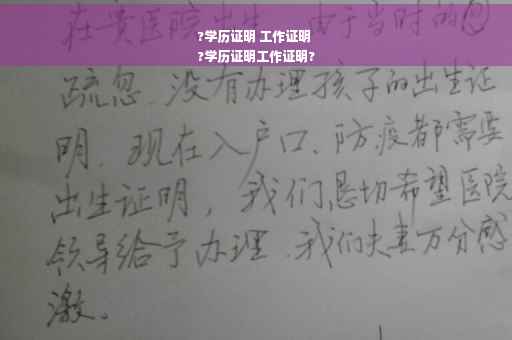 在贵医院出生，由于当时的
?学历证明 工作证明
?学历证明工作证明?
疏忽，没有办理孩子的出生证
明。现在入户口、防疫都需要
出生证明，我们恳切希望医院
领导给予办理，我们夫妻万分感
激。